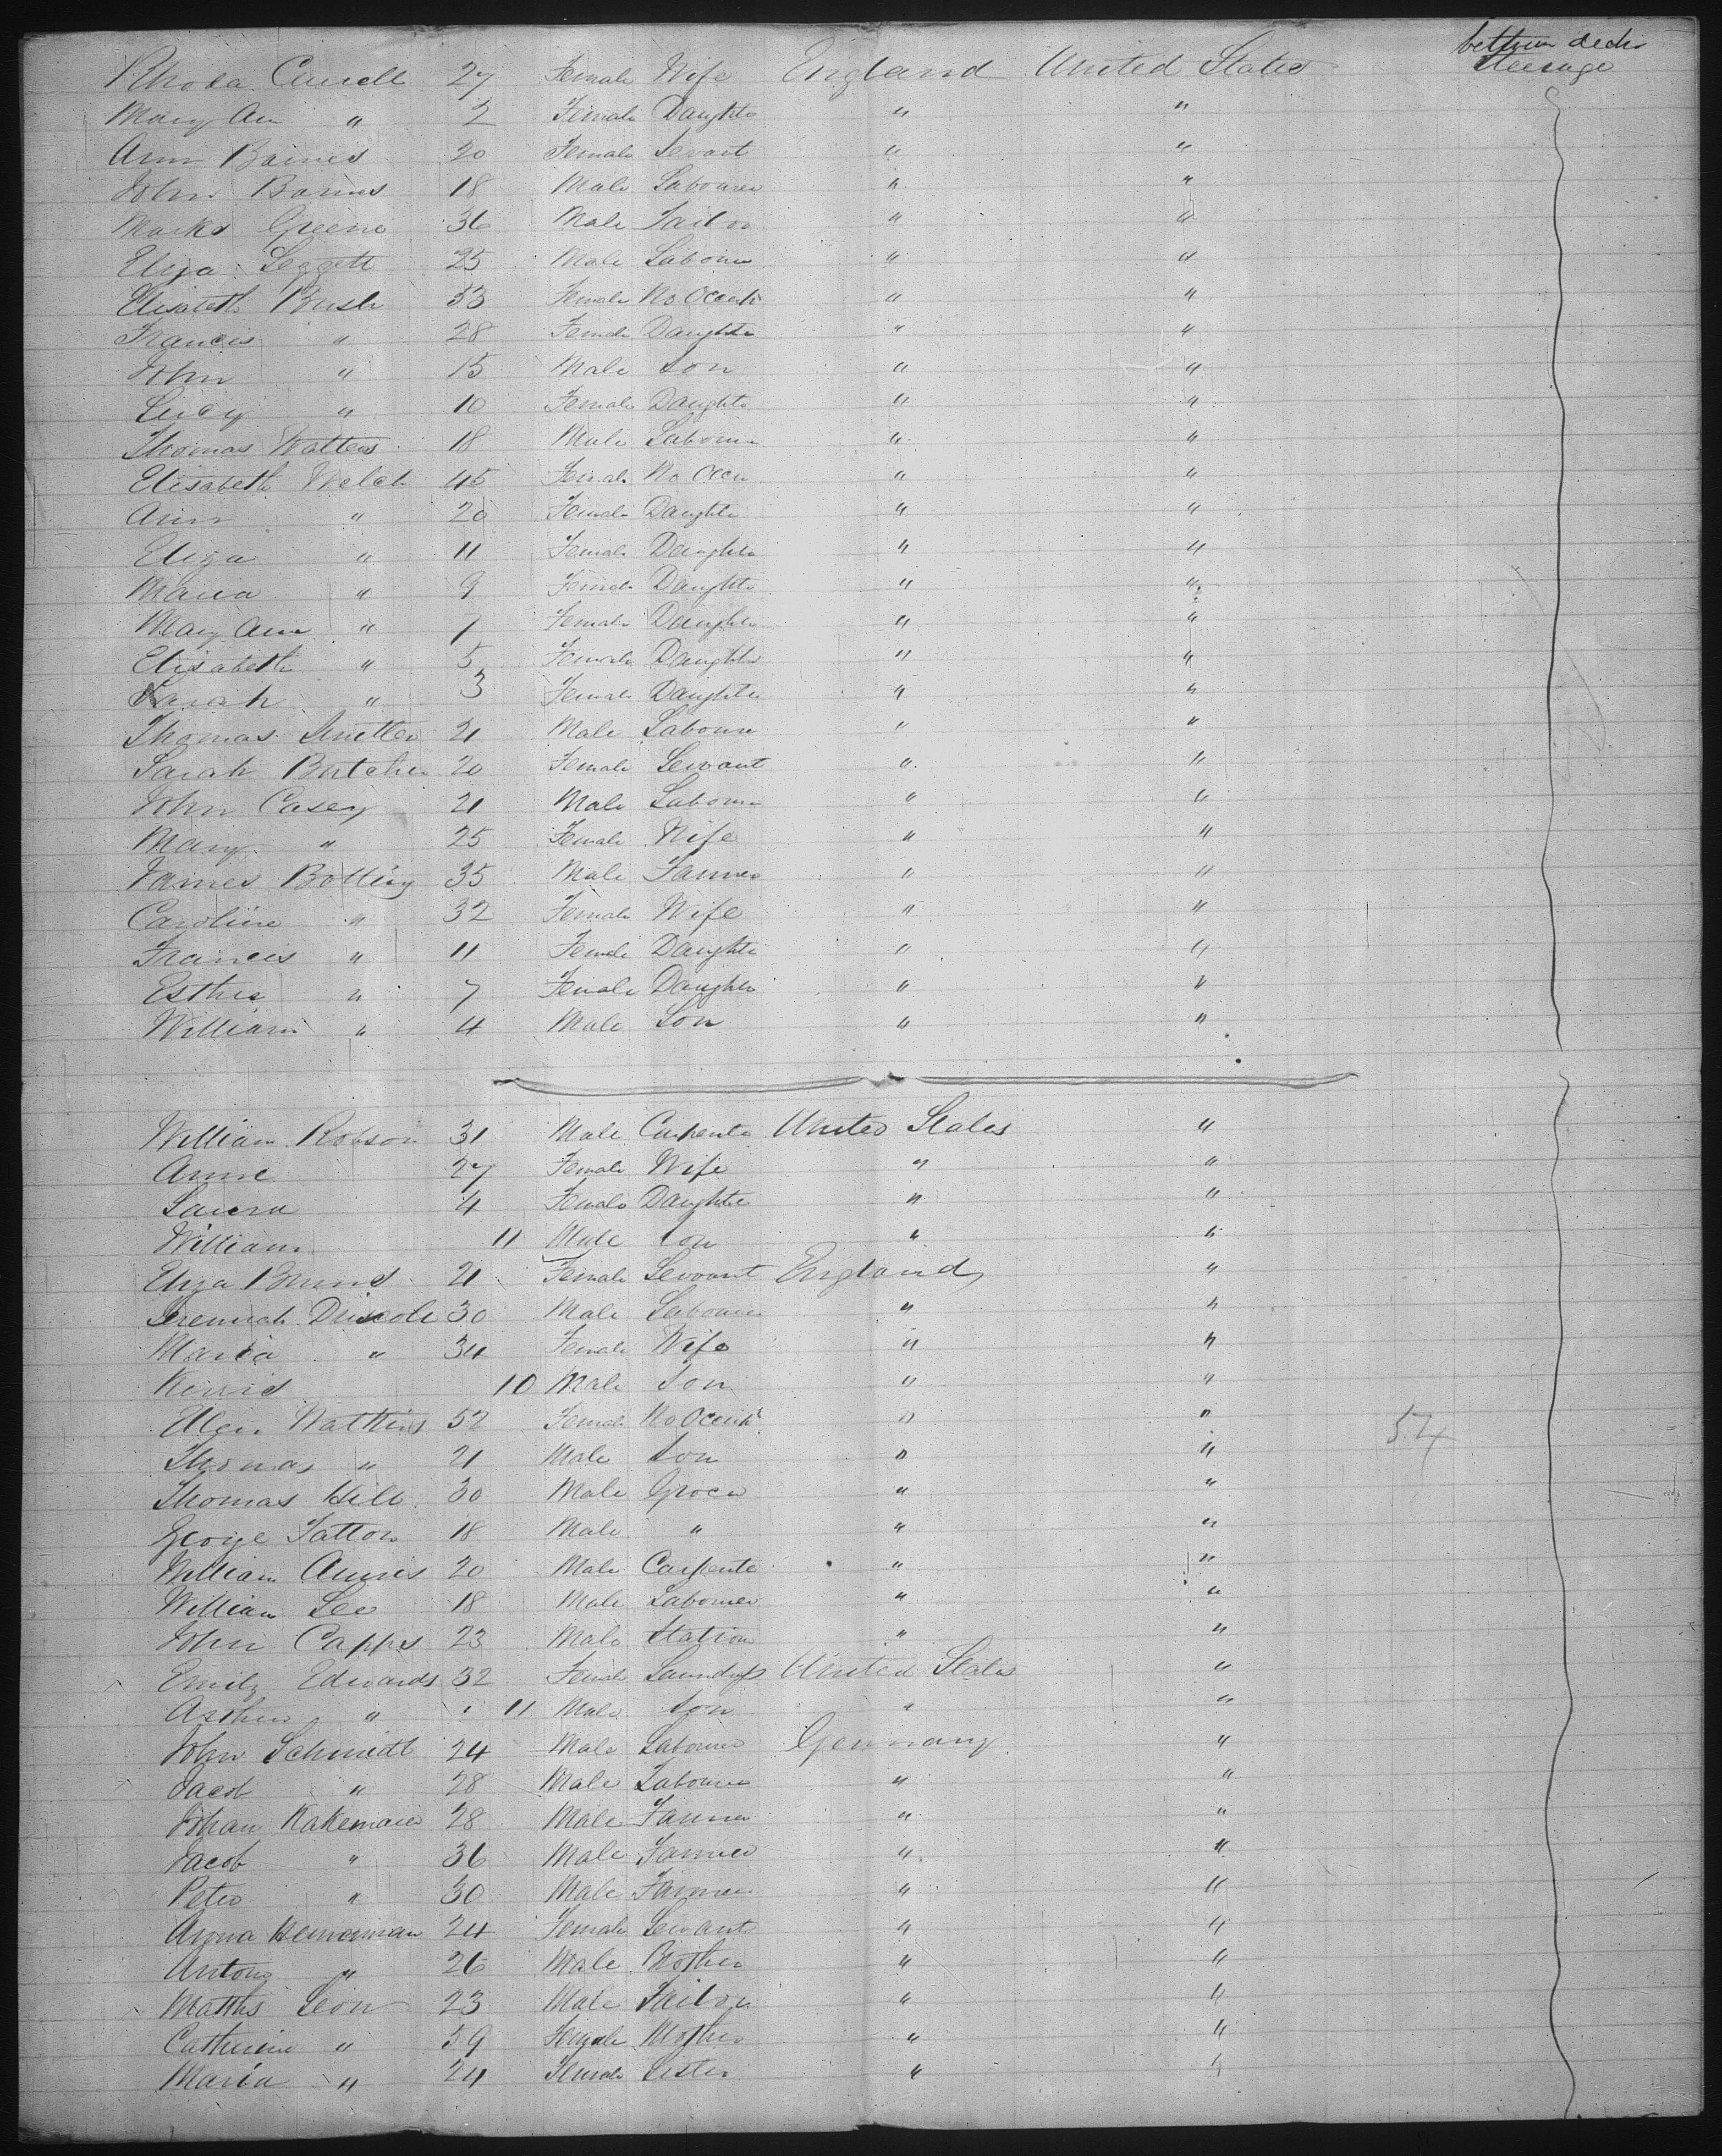 between decks
Rhoda 27 Female Wife England United States Steerage
Mary An " 2 Female Daughte " "
Ann Baines 20 Female Sevant " "
John Barnes 18 Male Labourer " "
Marks Greene 36 Male Tailor " "
Eliza Leggett 25 Male Labourer " "
Elisabeth Bush 53 Female No Occup " "
Frances " 28 Female Daughter " "
John " 15 Male Son " "
Lucy " 10 Female Daughte " "
Thomas Watters 18 Male Labourer " "
Elisabeth Welch 45 Female No Occu " "
Ann " 20 Female Daughte " "
Eliza " 11 Female Daughter " "
Maria " 9 Female Daughte " "
Mary Ann " 7 Female Daughter " "
Elisabeth " 5 Female Daughter " "
Sarah " 3 Female Daughter " "
Thomas 21 Male Labourer " "
Sarah Butcher 20 Female Servant " "
John Casey 21 Male Labourer " "
Mary " 25 Female Wife " "
James Botting 35 Male Farmer " "
Caroline " 32 Female Wife " "
Francis " 11 Female Daughte " "
Esther " 7 Female Daughter " "
William " 4 Male Son " "
William Robson 31 Male Carpente United States "
Anne 27 Female Wife " "
Laura 4 Female Daughter " "
William 11 Male Son " "
Eliza 21 Female Servant England "
Jeremiah Driscole 30 Male Labourer " "
Maria " 34 Female Wife " "
10 Male Son " "
Ellen Watkins 52 Female No Occup " " 54
Thomas " 21 Male Son " "
Thomas Hill 30 Male Grocer " "
George Tatton 18 Male " " "
William Annis 20 Male Carpente " "
William Lee 18 Male Labourer " "
John Capps 23 Male Station " "
Emily Edwards 32 Female United States "
Arthur " 11 Male Son " "
John Schmidt 24 Male Labourer Germany "
Jacob " 28 Male Labourer " "
Johan Kakemaier 28 Male Farmer " "
Jacob " 36 Male Farmer " "
Peter " 30 Male Farmer " "
Anna 24 Female Servant " "
Anton " 26 Male Brother " "
Matths Leon 23 Male Tailor " "
Catherine " 59 Female Mother " "
Maria " 24 Female Sister " "